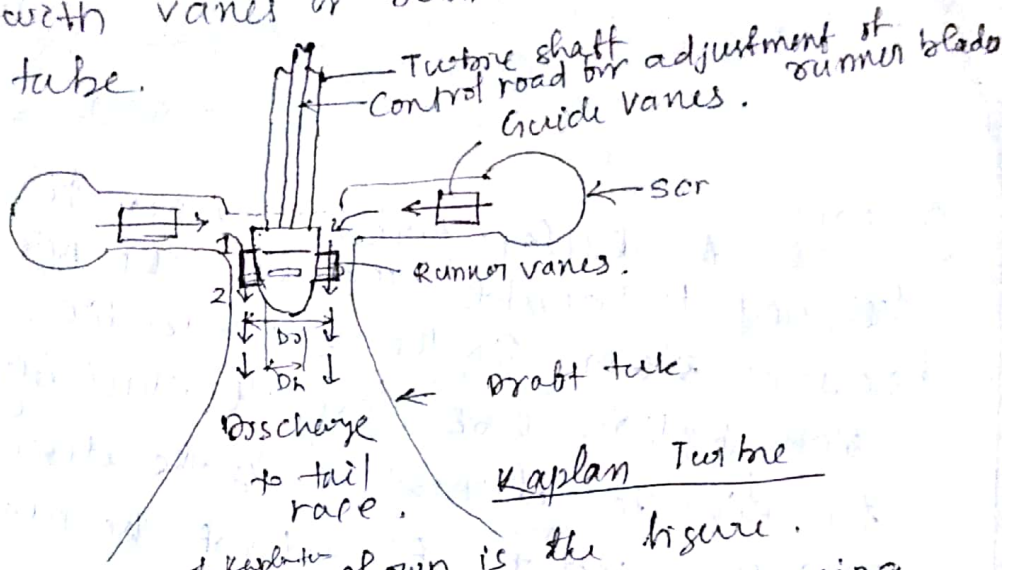 with vanes or
tube.
Turbine shaft
Control road for adjustment of
runner blade
Guide vanes.
Scr
1
1
2
Runner vanes.
Do
Dh
Draft tube.
Discharge
to tail
race.
Kaplan Turbine
is the figure.